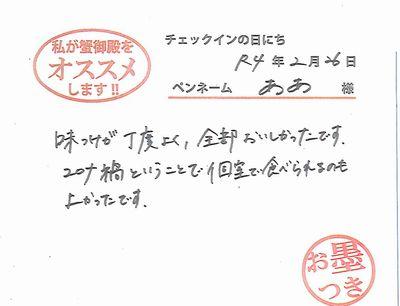 私が蟹御殿を
オススメ
します!!
チェックインの日にち
R4年2月26日
ペンネーム ああ 様
味つけが丁度よく、全部おいしかったです。
コロナ禍ということで個室で食べられるのも
よかったです。
お墨
つき